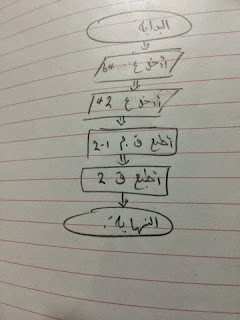 البداية
أدخل ع
أدخل ع 2#
أطبع ق م 1-2
أطبع ق 2
النهاية